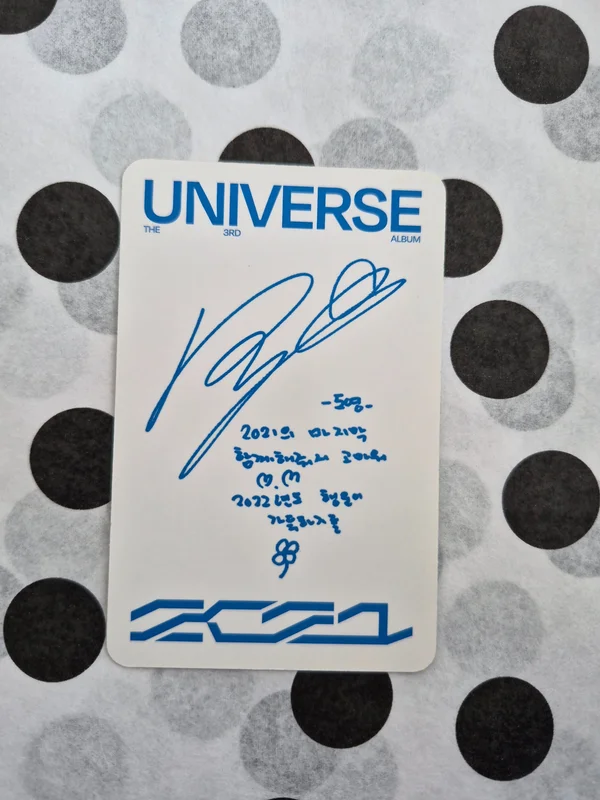 UNIVERSE
THE 3RD ALBUM
-도영-
2021의 마지막
함께해줘서 고마워
2022년도 행운이
가득하기를
2021